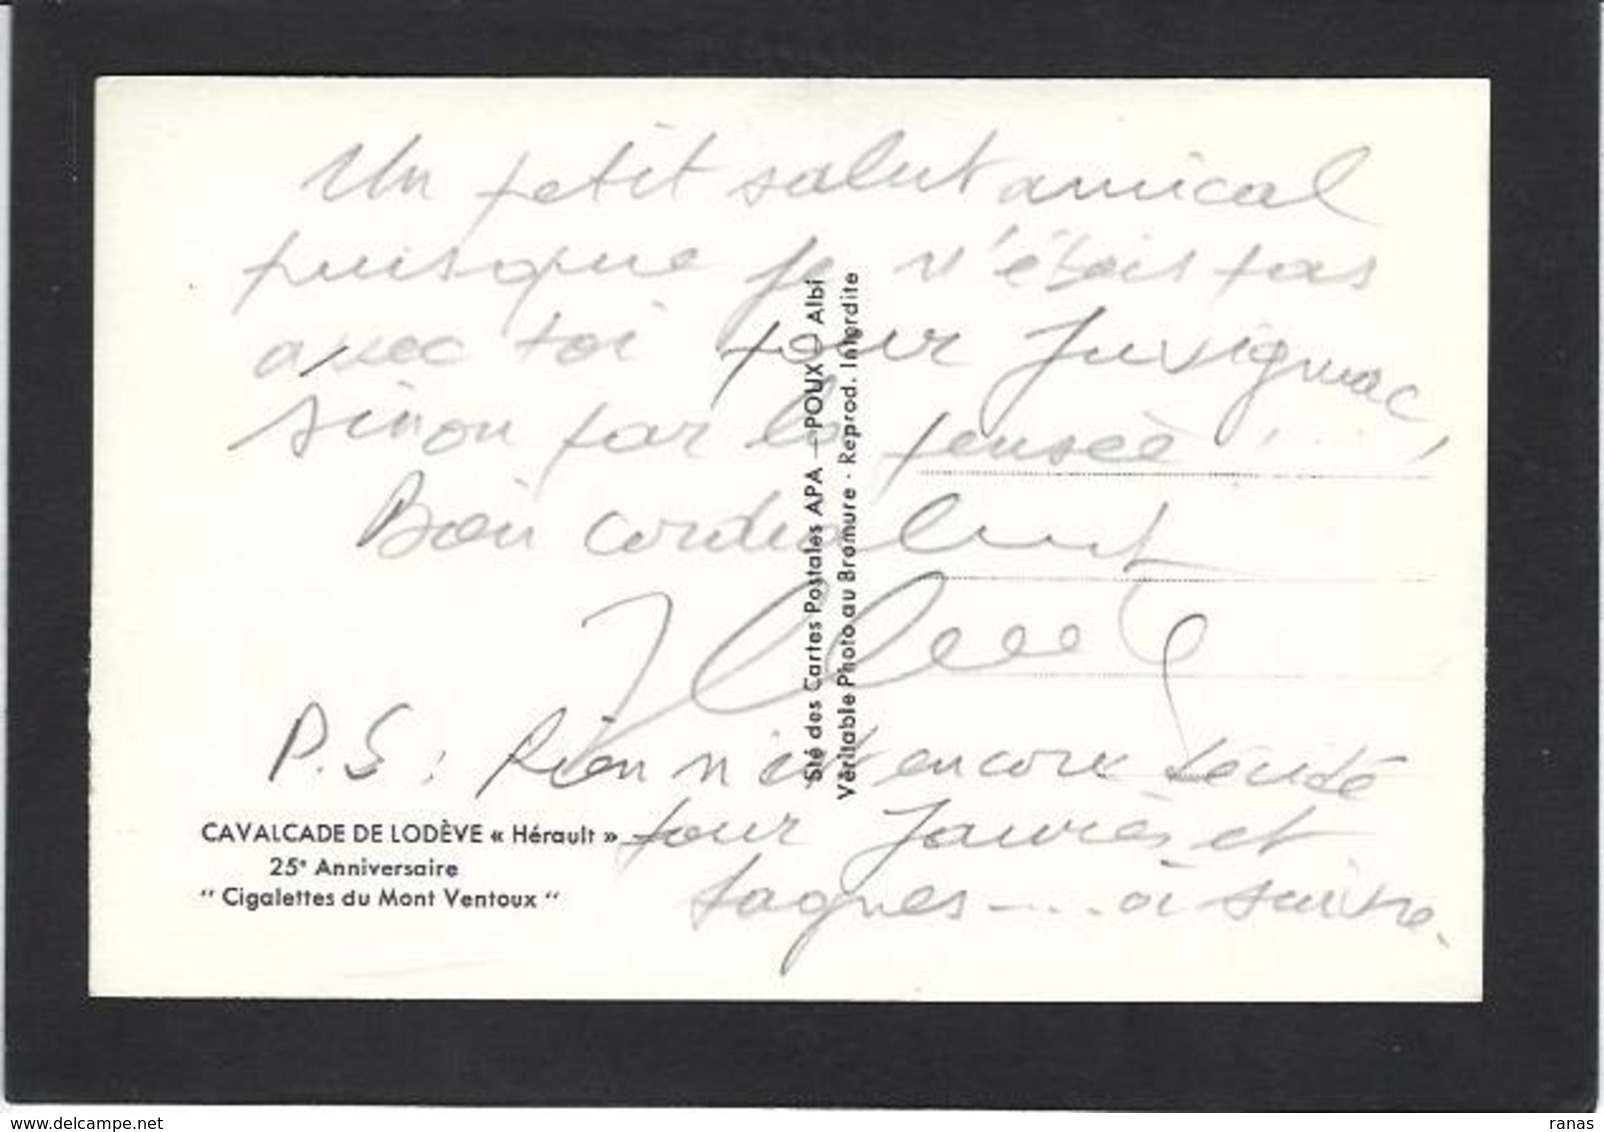 Un petit salut amical
puisque je n'étais pas
avec toi pour Juvignac,
sinon par la pensée!...
Bien cordialement
P.S: Rien n'est encore
pour Jaurès et
... à suivre.
CAVALCADE DE LODÈVE « Hérault »
25e Anniversaire
“ Cigalettes du Mont Ventoux “
Sté des Cartes Postales APA - POUX - Albi
Véritable Photo au Bromure - Reprod. Interdite
www.delcampe.net
ranas